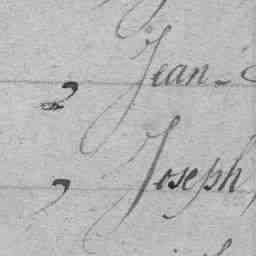 Jean-
Joseph,